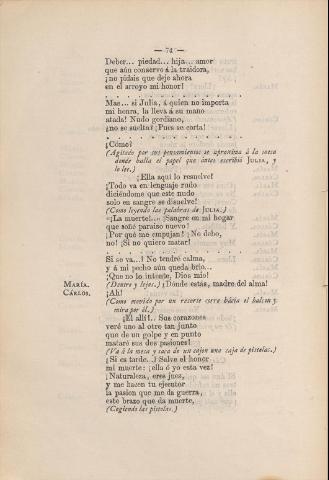 — 74 —
Deber... piedad... hija... amor
que aún conservo á la traidora,
¡no pidais que deje ahora
en el arroyo mi honor!
. . . . . . . . . . . . . . . .
Mas... si Julia, á quien no importa
mi honra, la lleva á su mano
atada! Nudo gordiano,
¿no se suelta? ¡Pues se corta!
. . . . . . . . . . . . . . . .
¿Cómo?
(Agitado por sus pensamientos se aproxima á la mesa
donde halla el papel que ántes escribió JULIA, y
lo lee.)
¡Ella aquí lo resuelve!
¡Todo va en lenguaje rudo
diciéndome que este nudo
solo en sangre se disuelve!
(Como leyendo las palabras de JULIA.)
«¡La muerte!...» ¡Sangre en mi hogar
que soñé paraiso nuevo!
¡Por qué me empujan! ¡No debo,
no! ¡Si no quiero matar!
. . . . . . . . . . . . . . . .
Si se va...! No tendré calma,
y á mi pecho aún queda brio...
¡Que no lo intente, Dios mio!
MARÍA. (Dentro y léjos.) ¡Dónde estás, madre del alma!
CÁRLOS. ¡Ah!
(Como movido por un resorte corre hácia el balcon y
mira por él.)
¡Él allí!.. Sus corazones
veré uno al otro tan junto
que de un golpe y en punto
mataré sus dos pasiones!
(Va á la mesa y saca de un cajon una caja de pistolas.)
¡Si es tarde...! Salve el honor
mi muerte: ¡ella ó yo esta vez!
¡Naturaleza, eres juez,
y me haces tu ejecutor
la pasion que me da guerra,
este brazo que da muerte,
(Cogiendo las pistolas.)